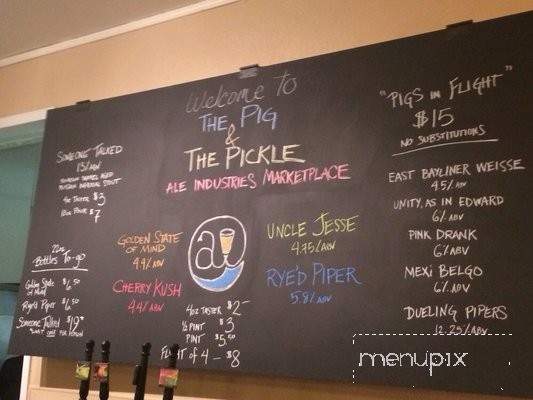 Welcome to
THE PIG
&
THE PICKLE
ALE INDUSTRIES MARKETPLACE
SOMEONE TALKED
13% ABV
BOURBON BARREL AGED
RUSSIAN IMPERIAL STOUT
4oz TASTER $3
$7
22oz
Bottles To-go
Golden State of Mind $6.50
Rye'd Piper $6.50
Someone Talked $19*
GOLDEN STATE
OF MIND
4.4% ABV
CHERRY KUSH
4.4% ABV
ai
UNCLE JESSE
4.75% ABV
RYE'D PIPER
5.8% ABV
4oz TASTER $2
½ PINT $3
PINT $5.50
FLIGHT OF 4 - $8
"PIGS IN FLIGHT"
$15
NO SUBSTITUTIONS
EAST BAYLINER WEISSE
4.5% ABV
UNITY, AS IN EDWARD
6% ABV
PINK DRANK
6% ABV
MEXI BELGO
6% ABV
DUELING PIPERS
12.25% ABV
menupix